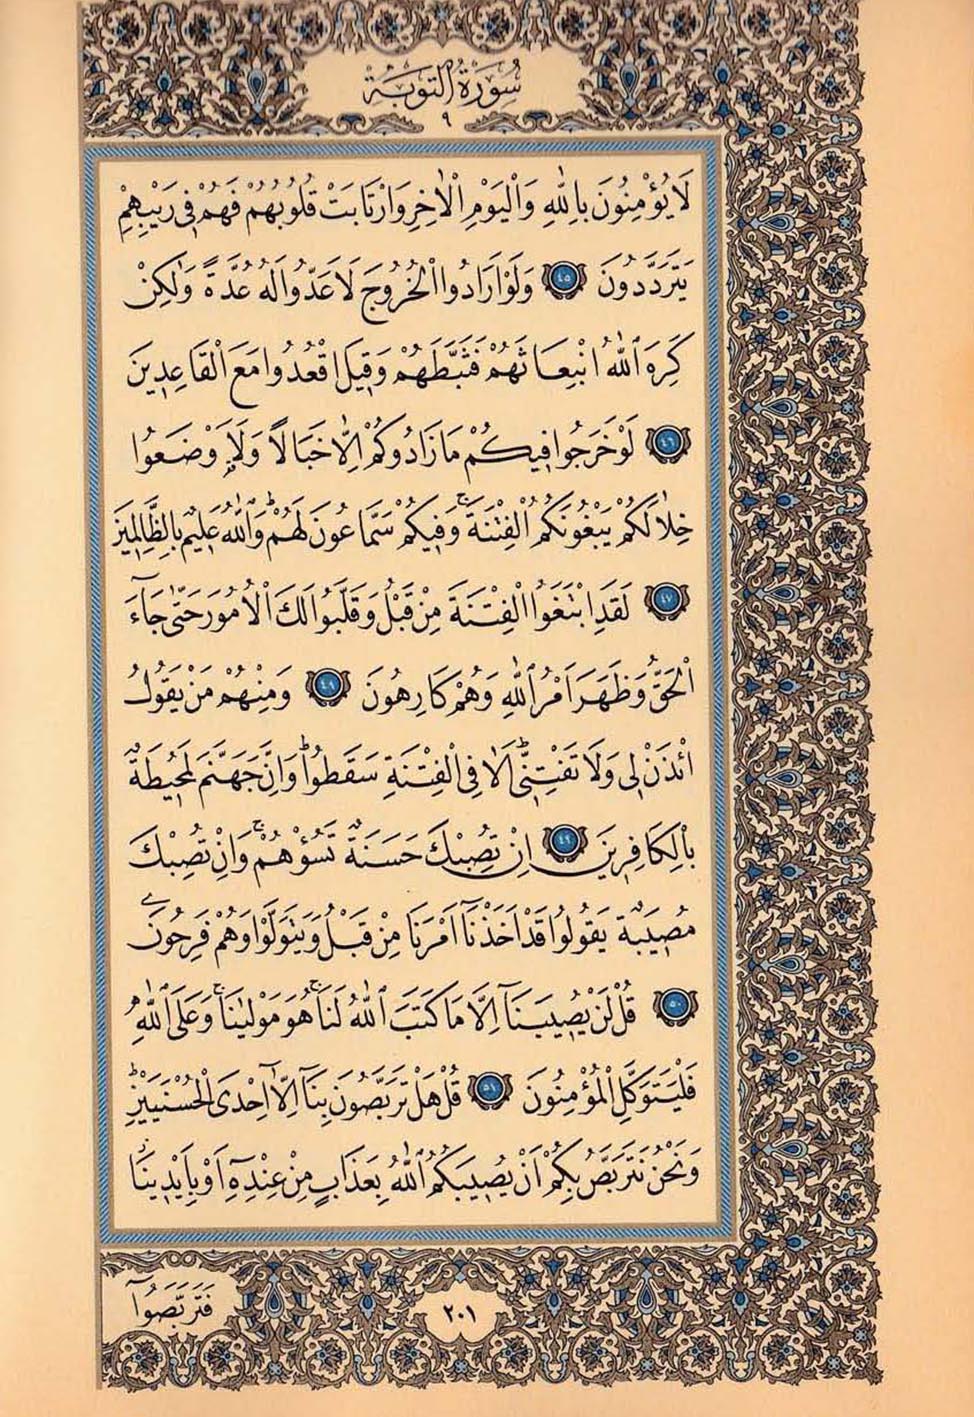 سُورَةُ التَّوْبَةِ
٩
لَا يُؤْمِنُونَ بِاللّٰهِ وَالْيَوْمِ الْاٰخِرِ وَارْتَابَتْ قُلُوبُهُمْ فَهُمْ فِى رَيْبِهِمْ
يَتَرَدَّدُونَ ﴿٤٥﴾ وَلَوْ اَرَادُوا الْخُرُوجَ لَاَعَدُّوا لَهُ عُدَّةً وَلٰكِنْ
كَرِهَ اللّٰهُ انْبِعَاثَهُمْ فَثَبَّطَهُمْ وَقِيلَ اقْعُدُوا مَعَ الْقَاعِدِينَ
﴿٤٦﴾ لَوْ خَرَجُوا فِيكُمْ مَا زَادُوكُمْ اِلَّا خَبَالًا وَلَا۬اَوْضَعُوا
خِلَالَكُمْ يَبْغُونَكُمُ الْفِتْنَةَۚ وَفِيكُمْ سَمَّاعُونَ لَهُمْۜ وَاللّٰهُ عَلِيمٌ بِالظَّالِمِينَ
﴿٤٧﴾ لَقَدِ ابْتَغَوُا الْفِتْنَةَ مِنْ قَبْلُ وَقَلَّبُوا لَكَ الْاُمُورَ حَتّٰى جَٓاءَ
الْحَقُّ وَظَهَرَ اَمْرُ اللّٰهِ وَهُمْ كَارِهُونَ ﴿٤٨﴾ وَمِنْهُمْ مَنْ يَقُولُ
ائْذَنْ لِى وَلَا تَفْتِنِّىۜ اَلَا فِى الْفِتْنَةِ سَقَطُواۜ وَاِنَّ جَهَنَّمَ لَمُحِيطَةٌ
بِالْكَافِرِينَ ﴿٤٩﴾ اِنْ تُصِبْكَ حَسَنَةٌ تَسُؤْهُمْۚ وَاِنْ تُصِبْكَ
مُصِيبَةٌ يَقُولُوا قَدْ اَخَذْنَٓا اَمْرَنَا مِنْ قَبْلُ وَيَتَوَلَّوْا وَهُمْ فَرِحُونَ
﴿٥٠﴾ قُلْ لَنْ يُصِيبَنَٓا اِلَّا مَا كَتَبَ اللّٰهُ لَنَاۚ هُوَ مَوْلٰينَاۚ وَعَلَى اللّٰهِ
فَلْيَتَوَكَّلِ الْمُؤْمِنُونَ ﴿٥١﴾ قُلْ هَلْ تَرَبَّصُونَ بِنَٓا اِلَّٓا اِحْدَى الْحُسْنَيَيْنِۜ
وَنَحْنُ نَتَرَبَّصُ بِكُمْ اَنْ يُصِيبَكُمُ اللّٰهُ بِعَذَابٍ مِنْ عِنْدِهِٓ اَوْ بِاَيْدِينَاۘ
٢٠١
فَتَرَبَّصُٓوا